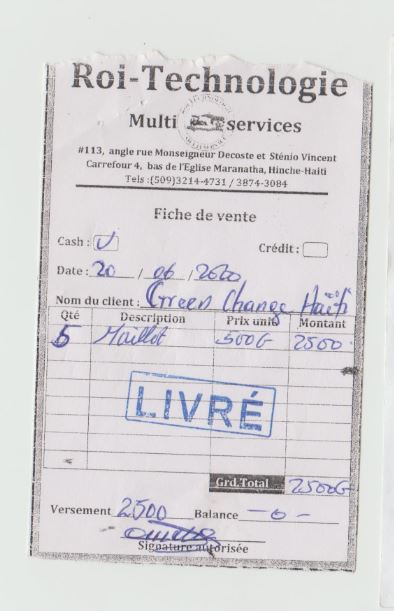 Roi-Technologie
Multi services
#113, angle rue Monseigneur Decoste et Sténio Vincent
Carrefour 4, bas de l'Eglise Maranatha, Hinche-Haiti
Tels :(509)3214-4731 / 3874-3084
Fiche de vente
Cash : Crédit :
Date : 20 / 06 / 2020
Nom du client : Green Change Haïti
Qté Description Prix unit Montant
5 Maillot 500G 2500
LIVRÉ
Grd.Total 2500G
Versement 2500 Balance -0-
Signature autorisée